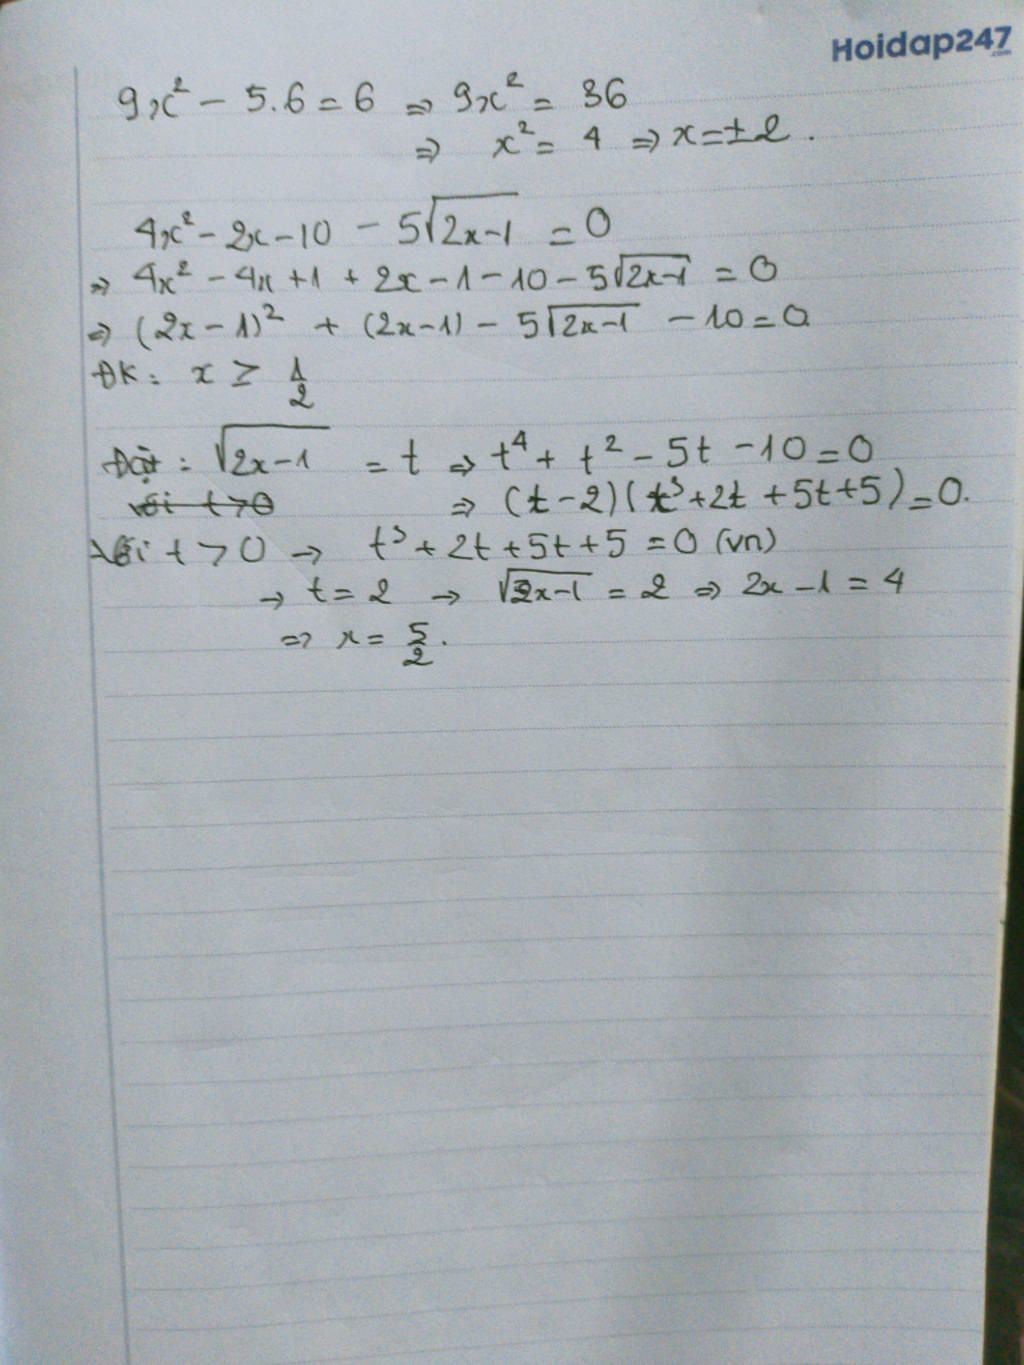 Hoidap247
.com
9x² - 5.6 = 6 ⇒ 9x² = 36
⇒ x² = 4 ⇒ x = ±2.
4x² - 2x - 10 - 5√(2x-1) = 0
⇒ 4x² - 4x + 1 + 2x - 1 - 10 - 5√(2x-1) = 0
⇒ (2x - 1)² + (2x-1) - 5√(2x-1) - 10 = 0
ĐK: x ≥ 1/2
Đặt: √(2x-1) = t ⇒ t⁴ + t² - 5t - 10 = 0
với t > 0 ⇒ (t-2)(t³ + 2t + 5t + 5) = 0.
Với t > 0 → t³ + 2t + 5t + 5 = 0 (vn)
→ t = 2 → √(2x-1) = 2 ⇒ 2x - 1 = 4
⇒ x = 5/2.